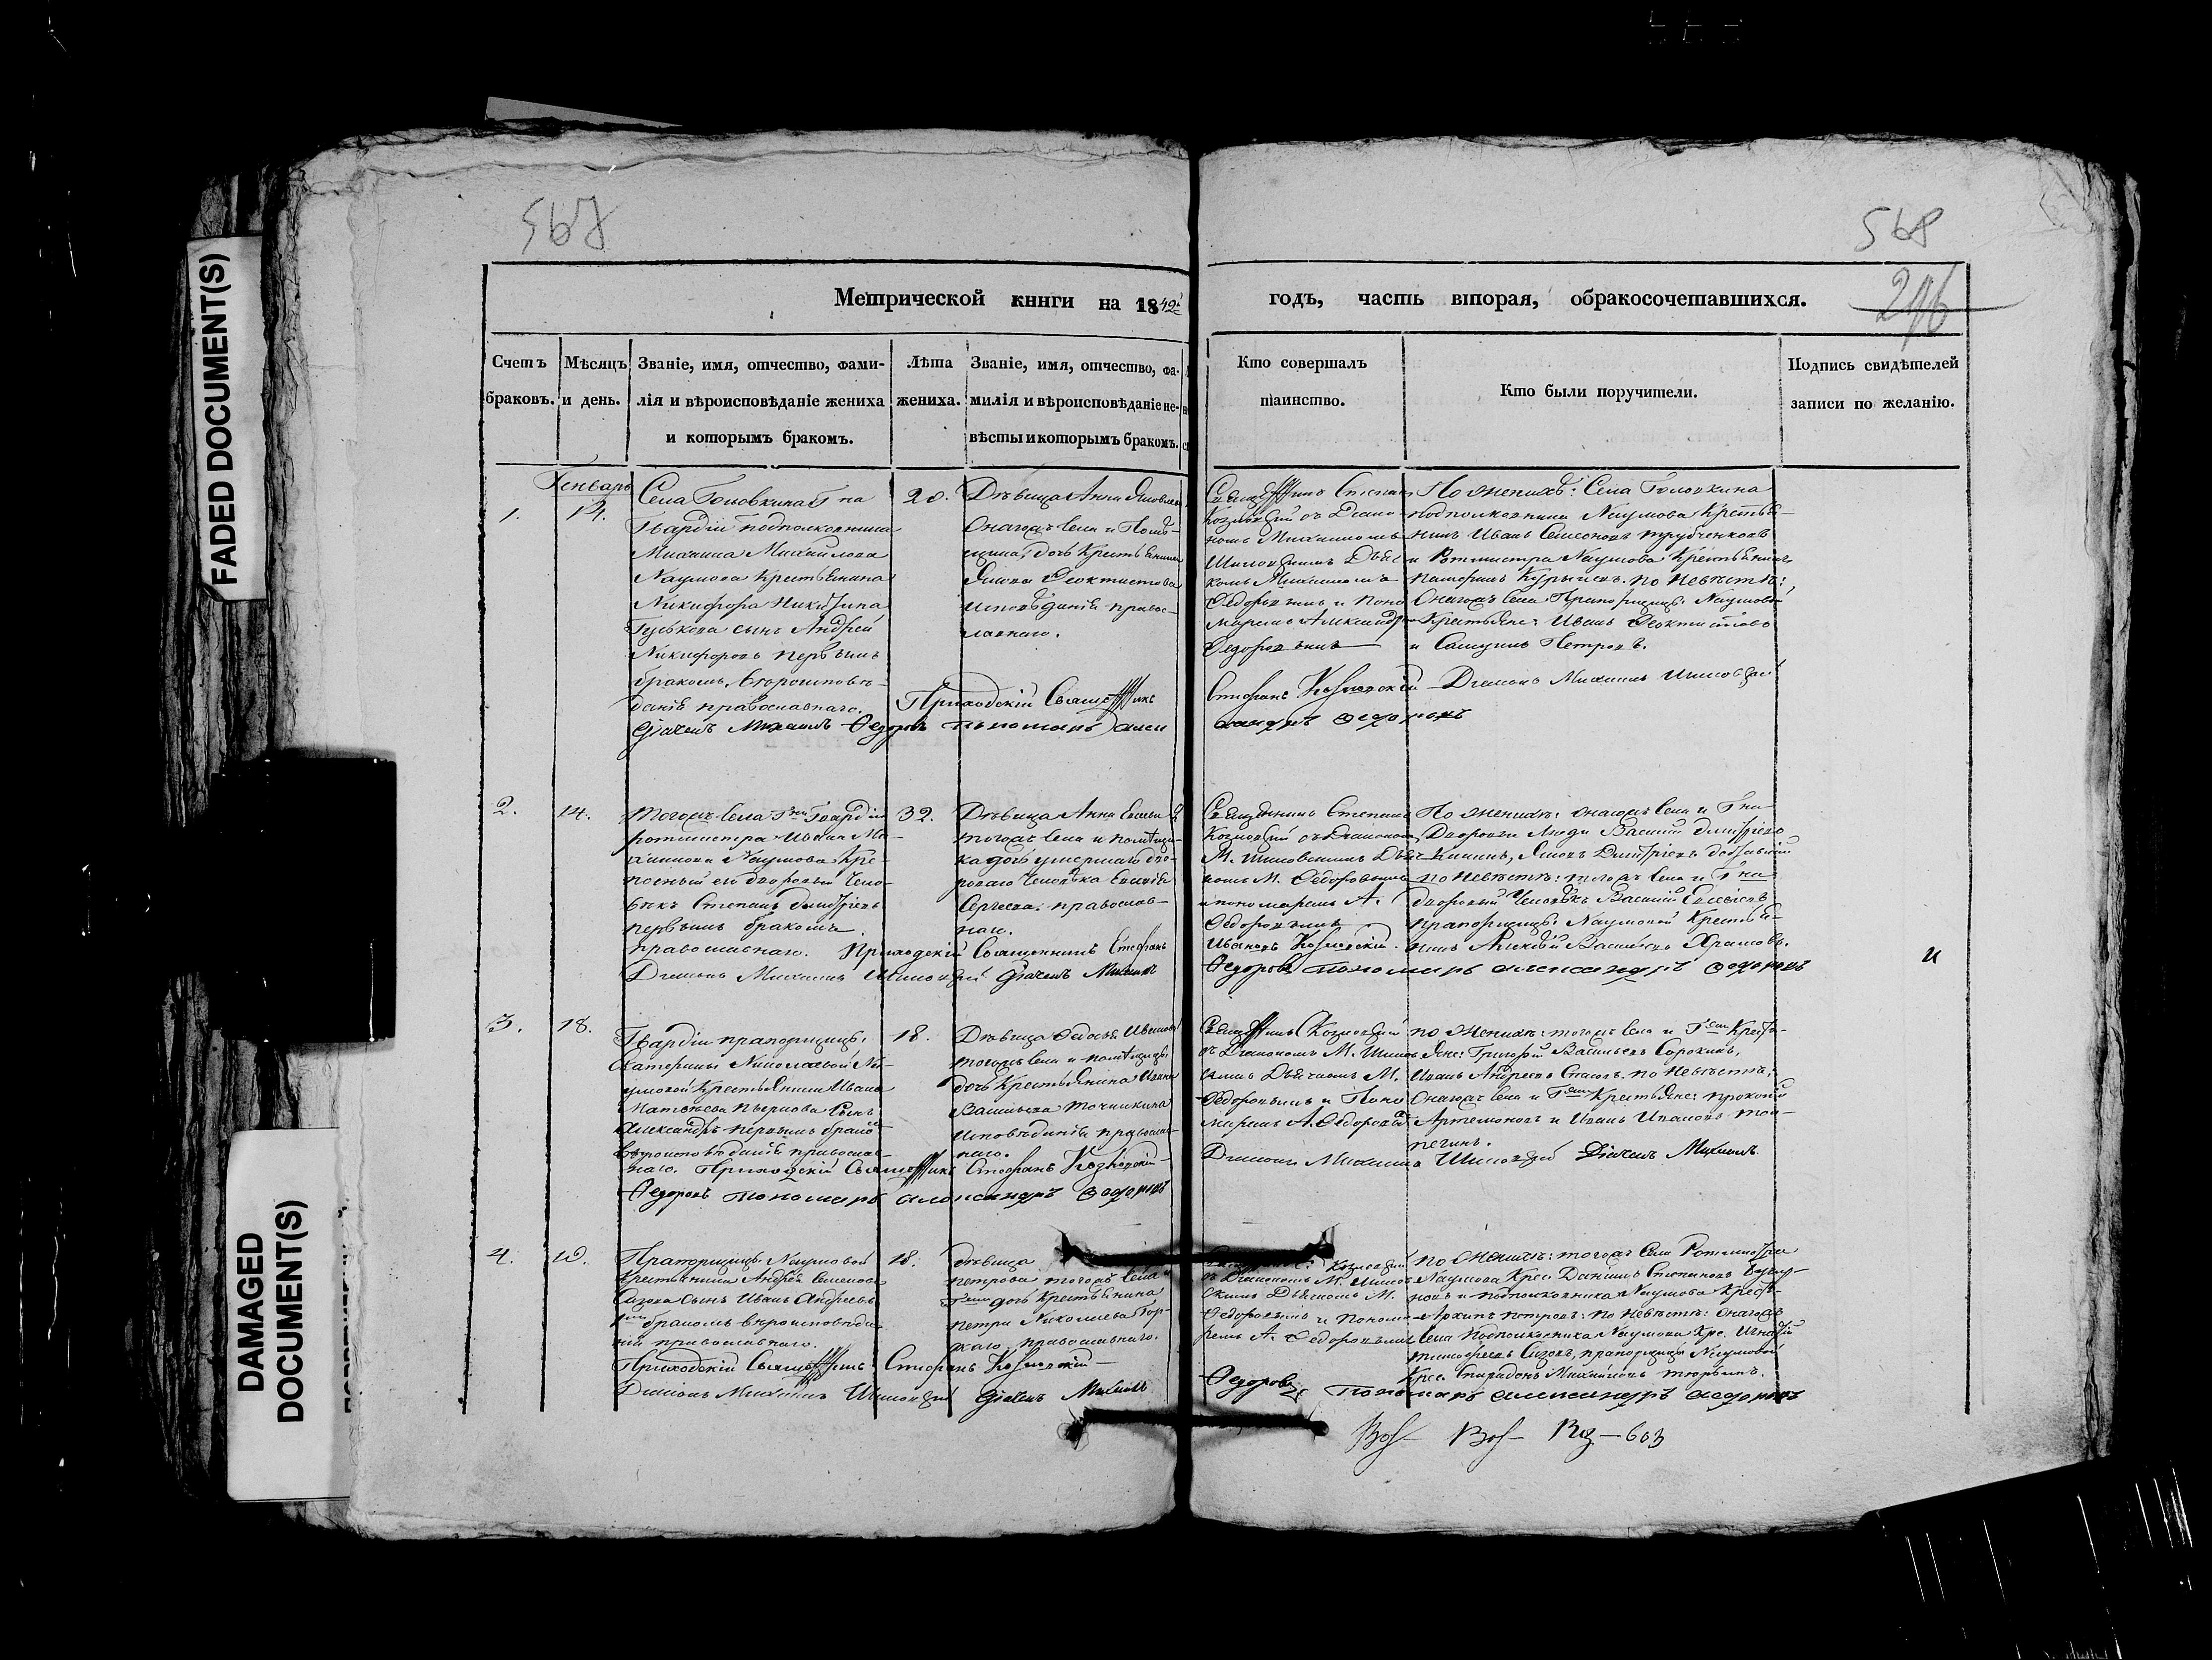 FADED DOCUMENT(S)
DAMAGED DOCUMENT(S)
567
568
296
Метрической книги на 1842
годъ, часть вторая, обракосочетавшихся.
Счетъ браковъ.
Мѣсяцъ и день.
Званіе, имя, отчество, фами-
лія и вѣроисповѣданіе жениха
и которымъ бракомъ.
Лѣта
жениха.
Званіе, имя, отчество, фа-
милія и вѣроисповѣданіе не-
вѣсты и которымъ бракомъ.
Кто совершалъ
таинство.
Кто были поручители.
Подпись свидѣтелей
записи по желанію.
Генварь
1.
14.
Села Головкина Г на
Гвардіи подполковника
Михаила Михайлова
Наумова крестьянина
Никифора Никитина
Гуськова сынъ Андрей
Никифоровъ первымъ
бракомъ, вѣроисповѣ-
данія православнаго.
20.
Дѣвица Анна Яковлева
Онагожъ села и Помѣ-
щика, дочь крестьянина
Якова Феоктистова
исповѣданія право-
славнаго.
Козловскій съ Діако-
номъ Михаиломъ
Шиловскимъ Дьяч-
комъ Михаиломъ
Федоровымъ и Поно
маремъ Александр
Федоровымъ
По женихѣ: Села Головкина
подполковника Наумова Крестья-
нинъ Иванъ Семеновъ Трубченковъ
и Ротмистра Наумова Крестьянинъ
по Невѣстѣ:
Онагожъ села Прапорщицы Наумовой
Крестьяне: Иванъ Феоктистовъ
и Петровъ.
Приходскій Священникъ
Стефанъ Козловскій Діаконъ Михаилъ Шиловскій
Дьячекъ Михаилъ Федоровъ Пономарь Алек
сандръ Федоровъ
2.
14.
Тогожъ села Гвардіи
ротмистра Ивана Ми-
хайлова Наумова Крѣ-
постный его дворовый Чело-
вѣкъ Степанъ Дмитріевъ
первымъ бракомъ
православнаго.
32.
Дѣвица Анна
тогожъ села и помѣщи-
ка дочь умершаго дво-
роваго Человѣка
Сергѣева. православ-
наго.
Священникъ Стефанъ
Козловскій съ Діакономъ
М. Шиловскимъ Дьяч-
комъ М. Федоровымъ
и пономаремъ А.
Федоровымъ
По женихѣ: онагожъ села и Г на
Дворовые Люди Василій Дмитріевъ
Яковъ Дмитріевъ
по Невѣстѣ: тогожъ села и Г на
дворовый Человѣкъ Василій
прапорщицы Наумовой Крестья-
нинъ Алексѣй Васильевъ Храмовъ.
Приходскій Священникъ Стефанъ
Ивановъ Козловскій.
Діаконъ Михаилъ Шиловскій Дьячекъ Михаилъ
Федоровъ Пономарь Александръ Федоровъ
3.
18.
Гвардіи прапорщицы
Катерины Николаевой На-
умовой Крестьянина Ивана
Матвѣева сынъ
Александръ первымъ брако
вѣроисповѣданія православ-
наго.
18.
Дѣвица Федосья Иванова
тогожъ села и помѣщицы
дочь Крестьянина Ивана
Васильева Точилкина
исповѣданія православ-
наго.
Козловскій
съ Діакономъ М. Шилов
скимъ Дьячкомъ М.
Федоровымъ и Поно
маремъ А. Федоровымъ
по женихѣ: тогожъ села и Г жи Кресть-
яне: Григорій Васильевъ Сорокинъ,
Иванъ Андреевъ по Невѣстѣ:
Онагожъ села и Г жи Крестьяне: Прокопій
Артемоновъ и Иванъ
Приходскій Стефанъ Козловскій
Діаконъ Михаилъ Шиловскій Дьячекъ Михаилъ
Федоровъ Пономарь Александръ Федоровъ
4.
Прапорщицы Наумовой
крестьянина Андрея Семенова
Сизова сынъ Иванъ Андреевъ
бракомъ вѣроисповѣда
нія православнаго.
18.
дѣвица
Петрова тогожъ села и
дочь Крестьянина
Петра Николаева Гор-
каго православнаго.
Козловскій
съ Діакономъ М. Шилов
скимъ Дьячкомъ М.
Федоровымъ и Понома
ремъ А. Федоровымъ
по женихѣ: тогожъ села Ротмистра
Наумова Крес. Данилъ Степановъ
и подполковника Наумова Крест-
Архипъ Петровъ: по Невѣстѣ: онагожъ
села Подполковника Наумова Кре. Игнатій
Тимофеевъ Сизовъ, прапорщицы Наумовой
Крес. Спиридонъ Михайловъ
Приходскій Стефанъ Козловскій
Діаконъ Михаилъ Шиловскій Дьячекъ Михаилъ
Федоровъ Пономарь Александръ Федоровъ